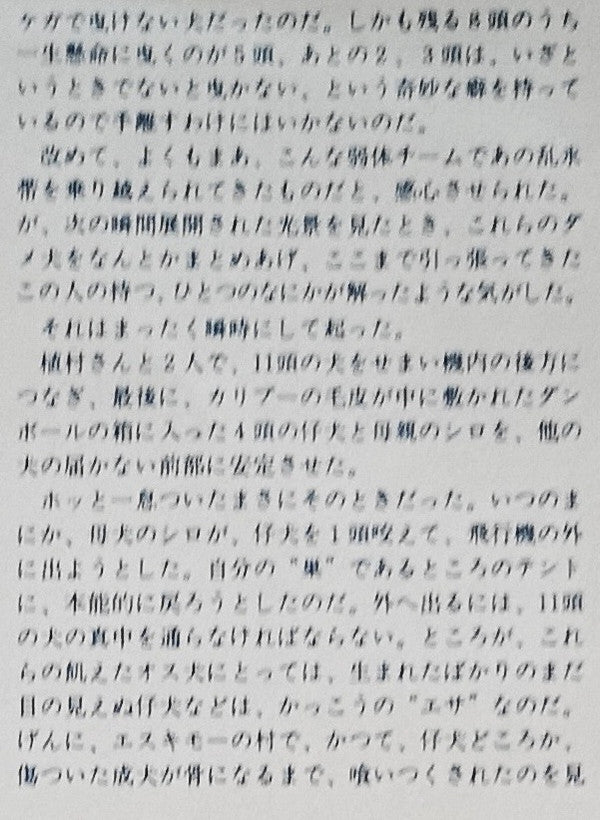 ケガで曳けない犬だったのだ。しかも残る8頭のうち
一生懸命に曳くのが5頭、あとの2、3頭は、いざと
いうときでないと曳かない、という奇妙な癖を持って
いるので手離すわけにはいかないのだ。
改めて、よくもまあ、こんな弱体チームであの乱氷
帯を乗り越えられてきたものだと、感心させられた。
が、次の瞬間展開された光景を見たとき、これらのダ
メ犬をなんとかまとめあげ、ここまで引っ張ってきた
この人の持つ、ひとつのなにかが解ったような気がした。
それはまったく瞬時にして起った。
植村さんと2人で、11頭の犬をせまい機内の後方に
つなぎ、最後に、カリブーの毛皮が中に敷かれたダン
ボールの箱に入った4頭の仔犬と母親のシロを、他の
犬の届かない前部に安定させた。
ホッと一息ついたまさにそのときだった。いつのま
にか、母犬のシロが、仔犬を1頭咬えて、飛行機の外
に出ようとした。自分の“巣”であるところのテント
に、本能的に戻ろうとしたのだ。外へ出るには、11頭
の犬の真中を通らなければならない。ところが、これ
らの飢えたオス犬にとっては、生まれたばかりのまだ
目の見えぬ仔犬などは、かっこうの“エサ”なのだ。
げんに、エスキモーの村で、かつて、仔犬どころか、
傷ついた成犬が骨になるまで、喰いつくされたのを見